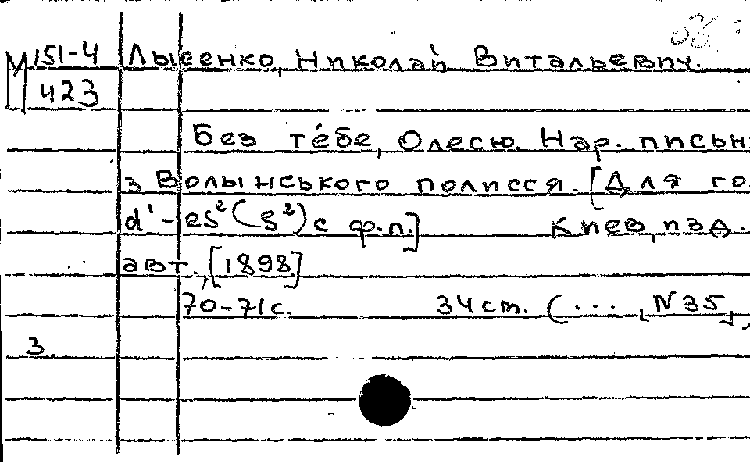 М 151-4 Лысенко, Николай Витальевич.
423
Без тебе, Олесю. Нар. письн
з Волынського полисся. [Для го
d'-es² (g²) с ф.п.] Киев, изд.
авт., [1898]
70-71с. 34 ст. (... [N 35],
3